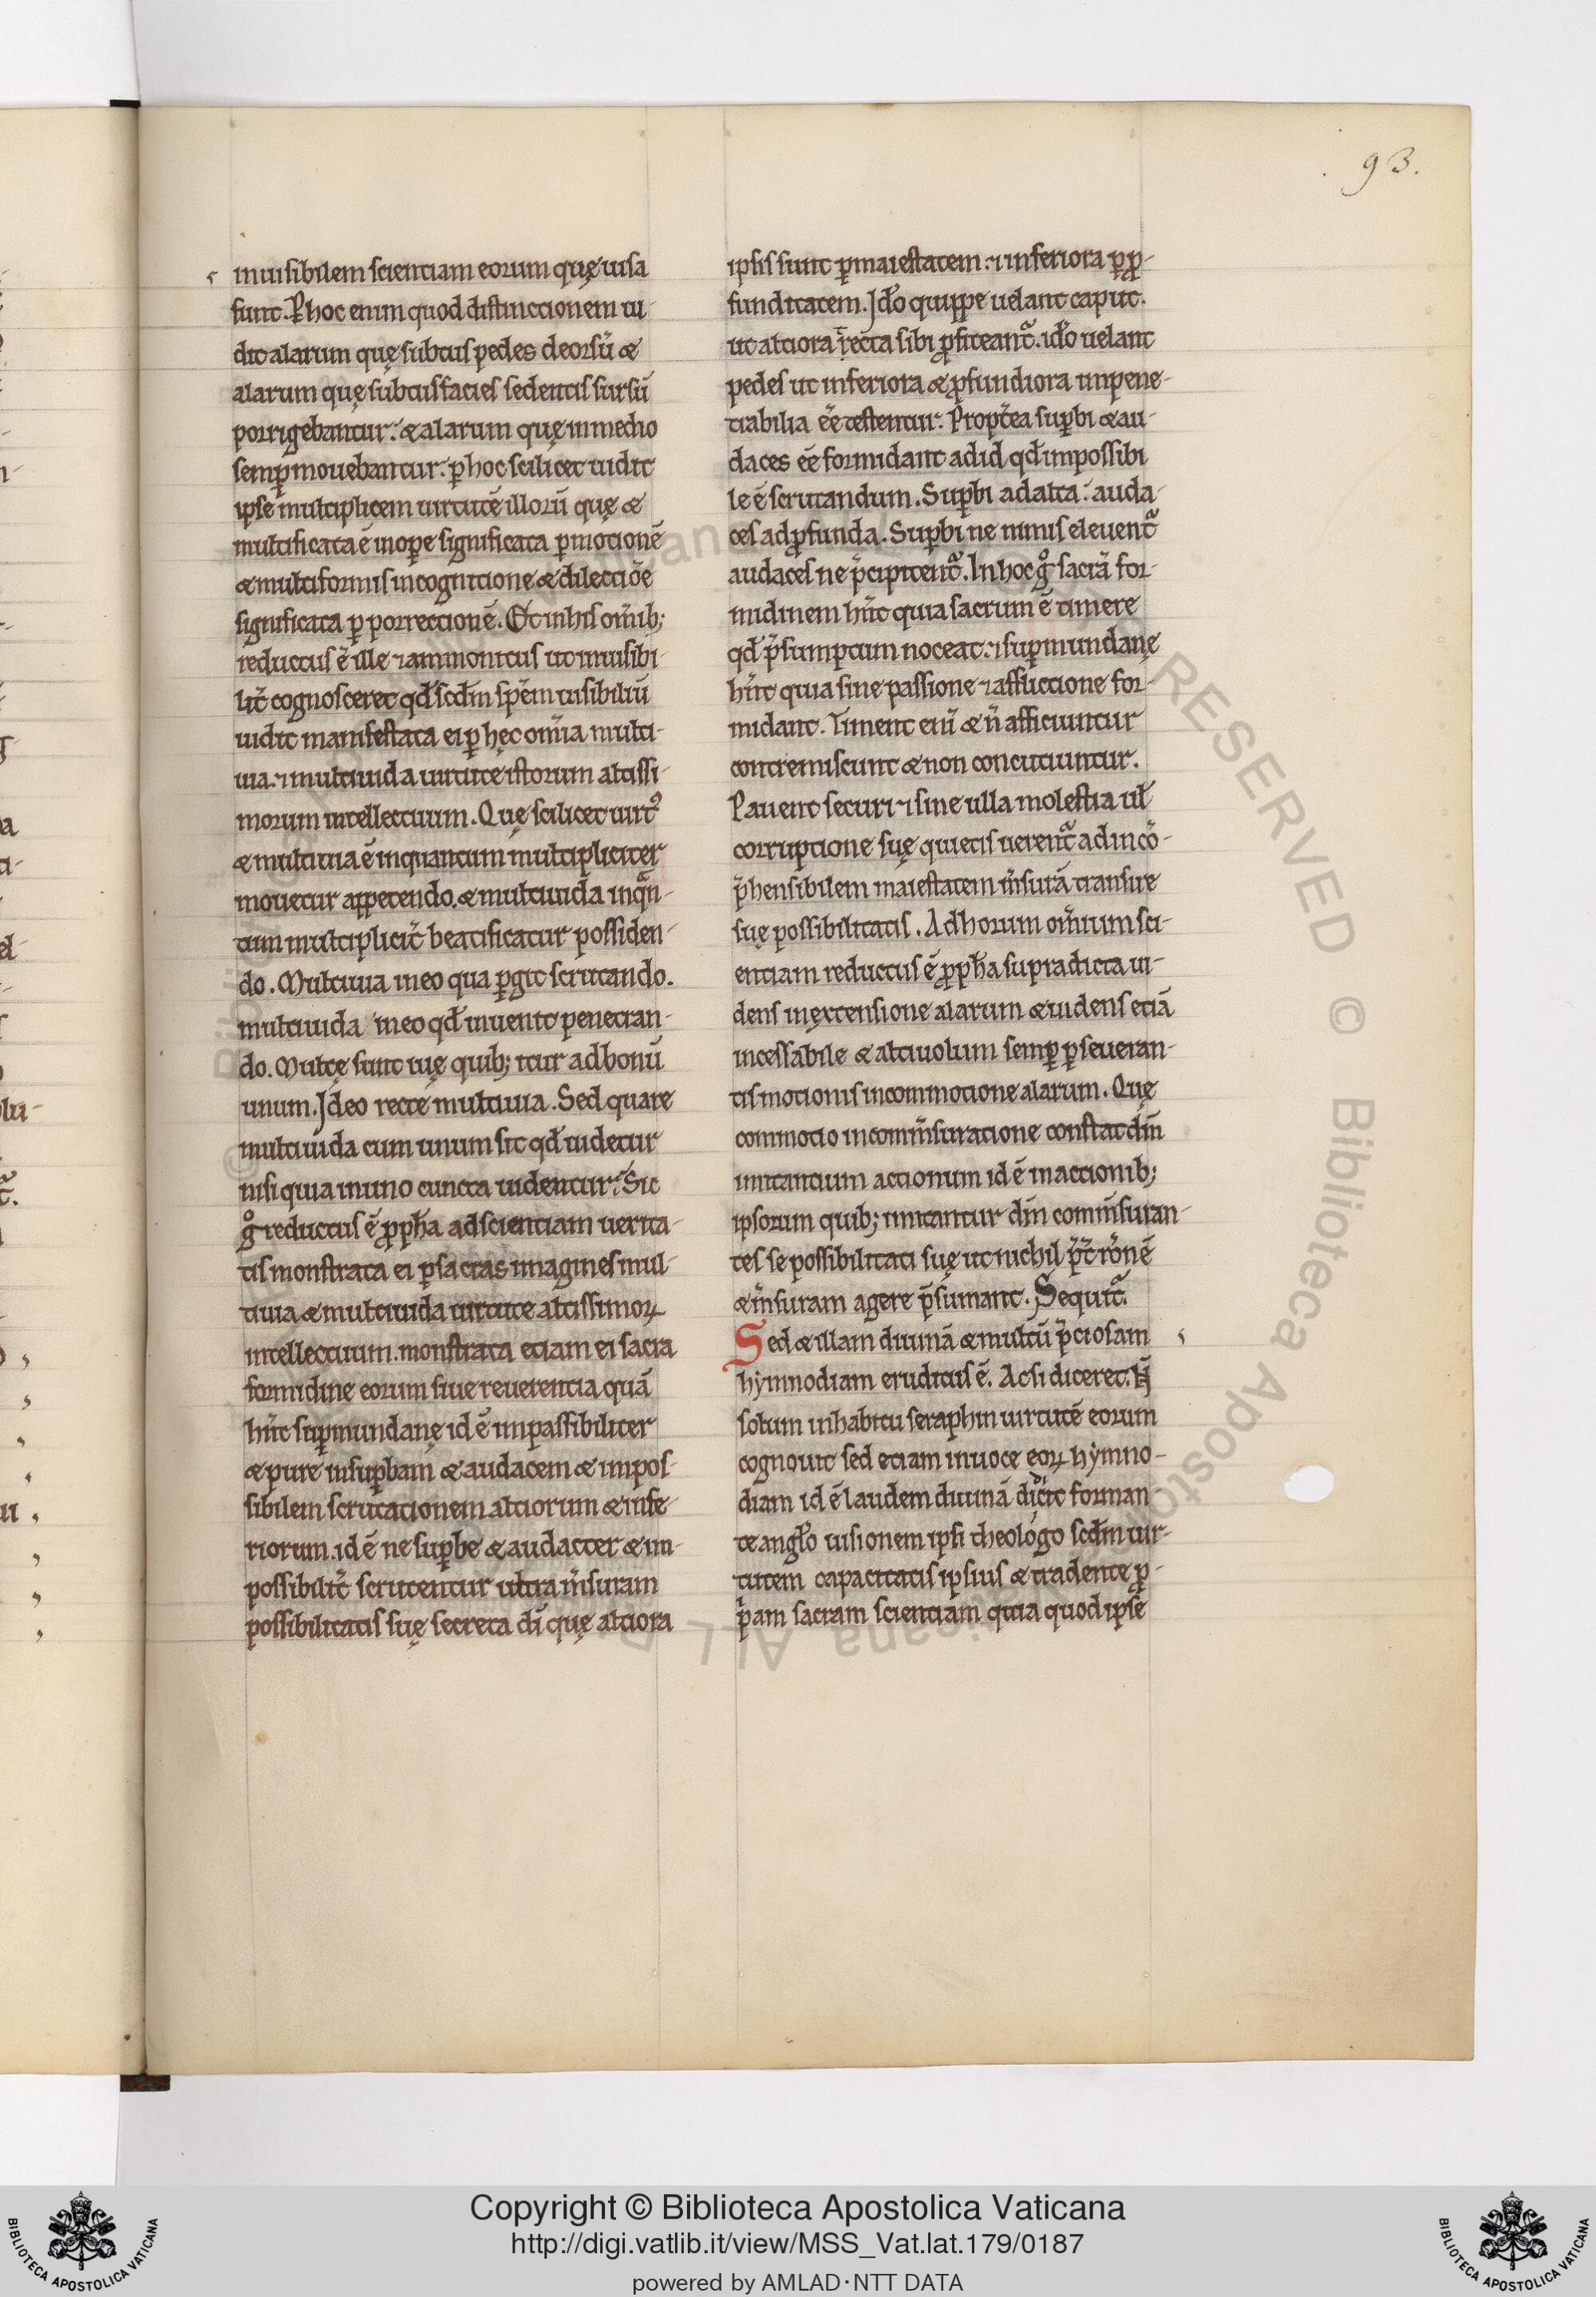 93.
inuisibilem scientiam eorum quę uisa
sunt. P hoc enim quod distinctionem ui-
dit alarum quę subtus pedes deorsū &
alarum quę subtus facies sedentis sursū
porrigebantur. & alarum quę in medio
semꝑ mouebantur. ꝑ hoc scilicet uidit
ipse multiplicem uirtutē illorū quę &
multificata ē in opere significata ꝑ motionē
& multiformis in cognitione & dilectiōe
significata ꝑ porrectionē. Et in his om̄ib;
reductus ē ille ⁊ ammonitus ut inuisibi-
lit̄ cognosceret qđ scđm spēm uisibiliū
uidit manifestata ei ꝑ hęc om̄ia multi-
uia. ⁊ multiuida uirtute istorum altissi-
morum intellectuum. Quę scilicet uirtꝰ
& multiuia ē inquantum multipliciter
mouetur appetendo. & multiuida inqͣn-
tum multiplicit̄ beatificatur possiden-
do. Multiuia in eo qua ꝑgit scrutando.
multiuida in eo qđ inuenit penetran-
do. Multę sunt uię quib; itur ad bonū
unum. Ideo recte multiuia. Sed quare
multiuida cum unum sit qđ uidetur
nisi quia in uno cuncta uidentur. Sic
gͦ reductus ē ꝓpħa ad scientiam uerita-
tis monstrata ei ꝑ sacras imagines mul-
tiuia & multiuida uirtute altissimoꝝ
intellectuum. monstrata etiam ei sacra
formidine eorum siue reuerentia quā
hn̄t suꝑmundanę id ē impassibiliter
& pure in suꝑbam & audacem & impos-
sibilem scrutationem altiorum & infe-
riorum. id ē ne suꝑbe & audacter & im-
possibilit̄ scrutentur ultra m̄suram
possibilitatis suę secreta dī quę altiora
ipsis sunt ꝑ maiestatem. ⁊ inferiora ꝑ ꝓ-
funditatem. Idō quippe uelant caput.
ut altiora tecta sibi ꝓfiteantͣ. idō uelant
pedes ut inferiora & ꝓfundiora inpene-
trabilia eē testentur. Propt̄ea suꝑbi & au-
daces eē formidant ad id qđ impossibi
le ē scrutandum. Suꝑbi ad alta. auda-
ces ad ꝓfunda. Suꝑbi ne nimis eleuentͣ
audaces ne p̄cipitentͣ. In hoc gͦ sacrā for-
midinem hn̄t quia sacrum ē timere
qđ p̄sumptum noceat. ⁊ suꝑmundanę
hn̄t quia sine passione ⁊ afflictione for-
midant. Timent enī & n̄ afficiuntur
contremiscunt & non concutiuntur.
Pauent securi ⁊ sine ulla molestia uł
corruptione suę quietis uerentͣ ad incō-
p̄hensibilem maiestatem m̄surā transire
suę possibilitatis. Ad horum om̄ium sci-
entiam reductus ē ꝓpħa supradicta ui-
dens in extensione alarum & uidens etiā
incessabile & altiuolum semꝑ ꝑseueran-
tis motionis in commotione alarum. Quę
commotio in comm̄suratione constat dm̄
imitantium actionum id ē in actionib;
ipsorum quib; imitantur dm̄ comm̄suran-
tes se possibilitati suę ut nichil p̄t̄ rōnē
& m̄suram agere p̄sumant. Sequitͣ.
Sed & illam diuinā & multū p̄ciosam
hẏmnodiam eruditus ē. Ac si diceret. N̄
solum in habitu seraphin uirtutē eorum
cognouit sed etiam in uoce eoꝝ hẏmno-
diam id ē laudem diuinā didicit forman-
te angło uisionem ipsi theologo scđm uir-
tutem capacitatis ipsius & tradente ꝓ-
p̄am sacram scientiam quia quod ipse
Copyright © Biblioteca Apostolica Vaticana
http://digi.vatlib.it/view/MSS_Vat.lat.179/0187
powered by AMLAD·NTT DATA
BIBLIOTECA APOSTOLICA VATICANA
BIBLIOTECA APOSTOLICA VATICANA